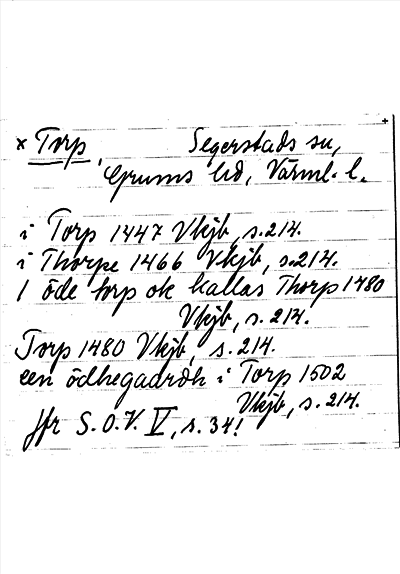 × Torp, Segerstads sn,
Grums hd, Värml. l.
i Torp 1447 Vkjb, s. 214.
i Thorpe 1466 Vkjb, s. 214.
1 öde torp ok kallas Thorp 1480
Vkjb, s. 214.
Torp 1480 Vkjb, s. 214.
een ödhegaardh i Torp 1502
Vkjb, s. 214.
Jfr S.O.V. V, s. 34!